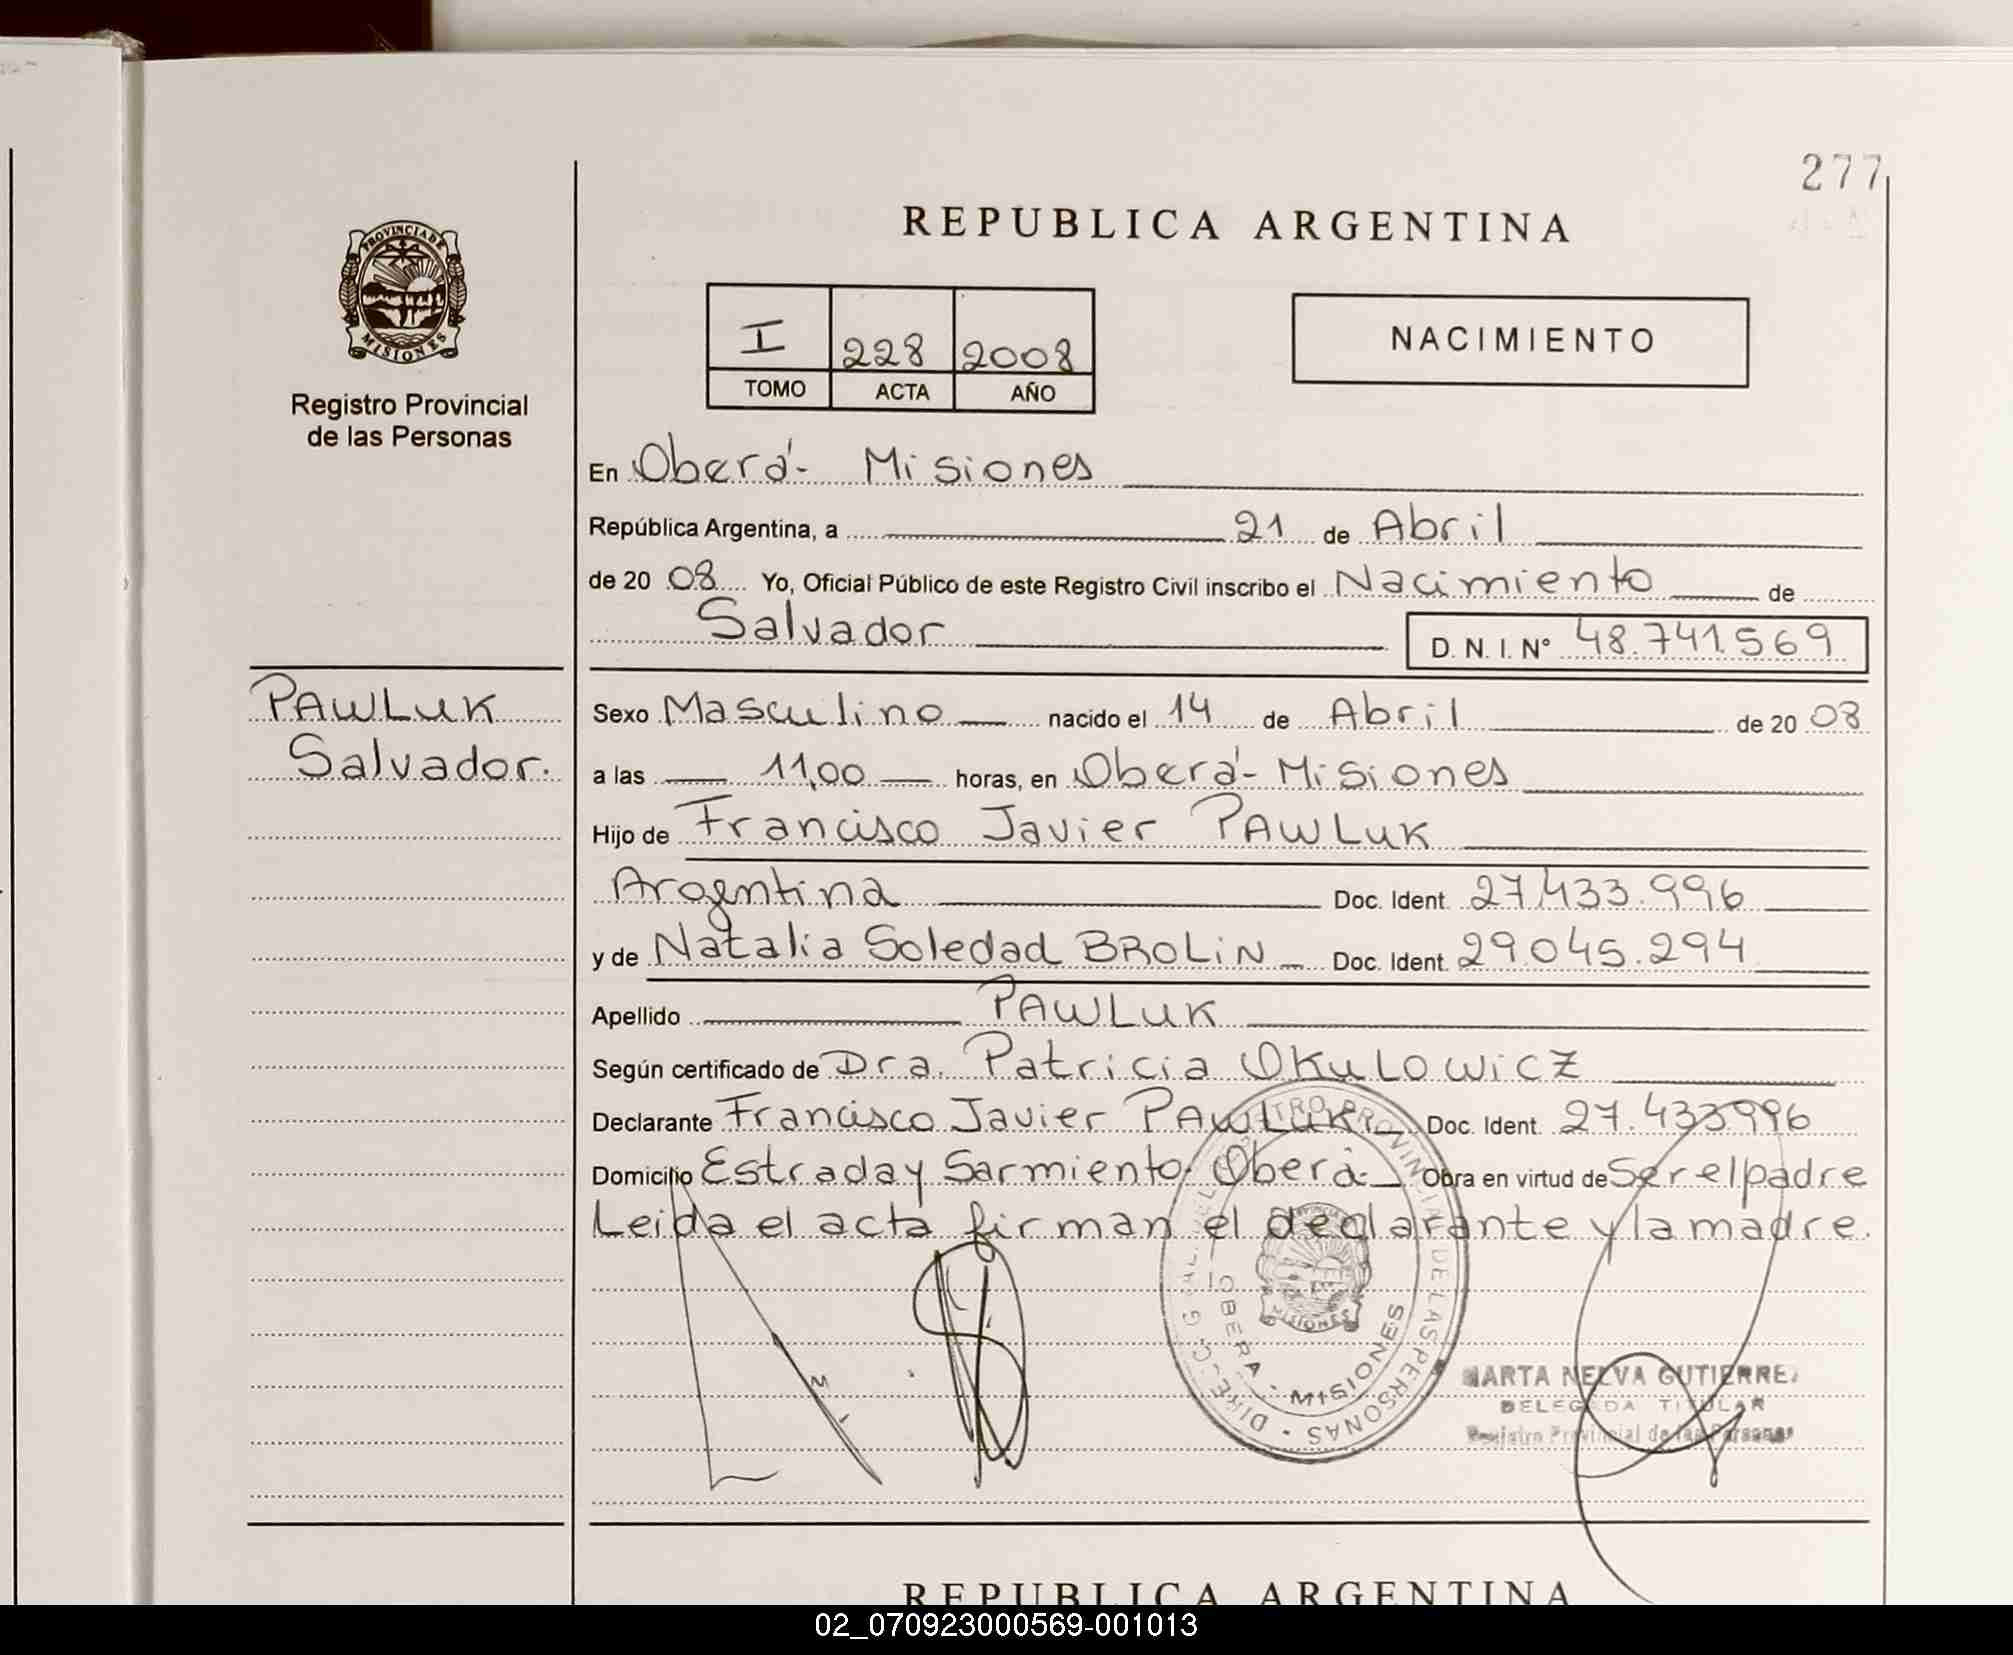 277
REPUBLICA ARGENTINA
PROVINCIA DE
MISIONES
Registro Provincial
de las Personas
I 228 2008
TOMO ACTA AÑO
NACIMIENTO
En Oberá- Misiones
República Argentina, a 21 de Abril
de 20 08 Yo, Oficial Público de este Registro Civil inscribo el Nacimiento de
Salvador D. N. I. N° 48.741.569
PAWLUK
Salvador.
Sexo Masculino nacido el 14 de Abril de 20 08
a las 11,00 horas, en Oberá- Misiones
Hijo de Francisco Javier PAWLUK
Argentina Doc. Ident. 27.433.996
y de Natalia Soledad BROLIN Doc. Ident. 29.045.294
Apellido PAWLUK
Según certificado de Dra. Patricia OKULOWICZ
Declarante Francisco Javier PAWLUK Doc. Ident. 27.433996
Domicilio Estrada y Sarmiento- Oberá- Obra en virtud de Ser el padre
Leida el acta firman el declarante y la madre.
OBERA - MISIONES
MISIONES
MARTA NELVA GUTIERREZ
DELEGADA TITULAR
Registro Provincial de las Personas
REPUBLICA ARGENTINA
02_070923000569-001013